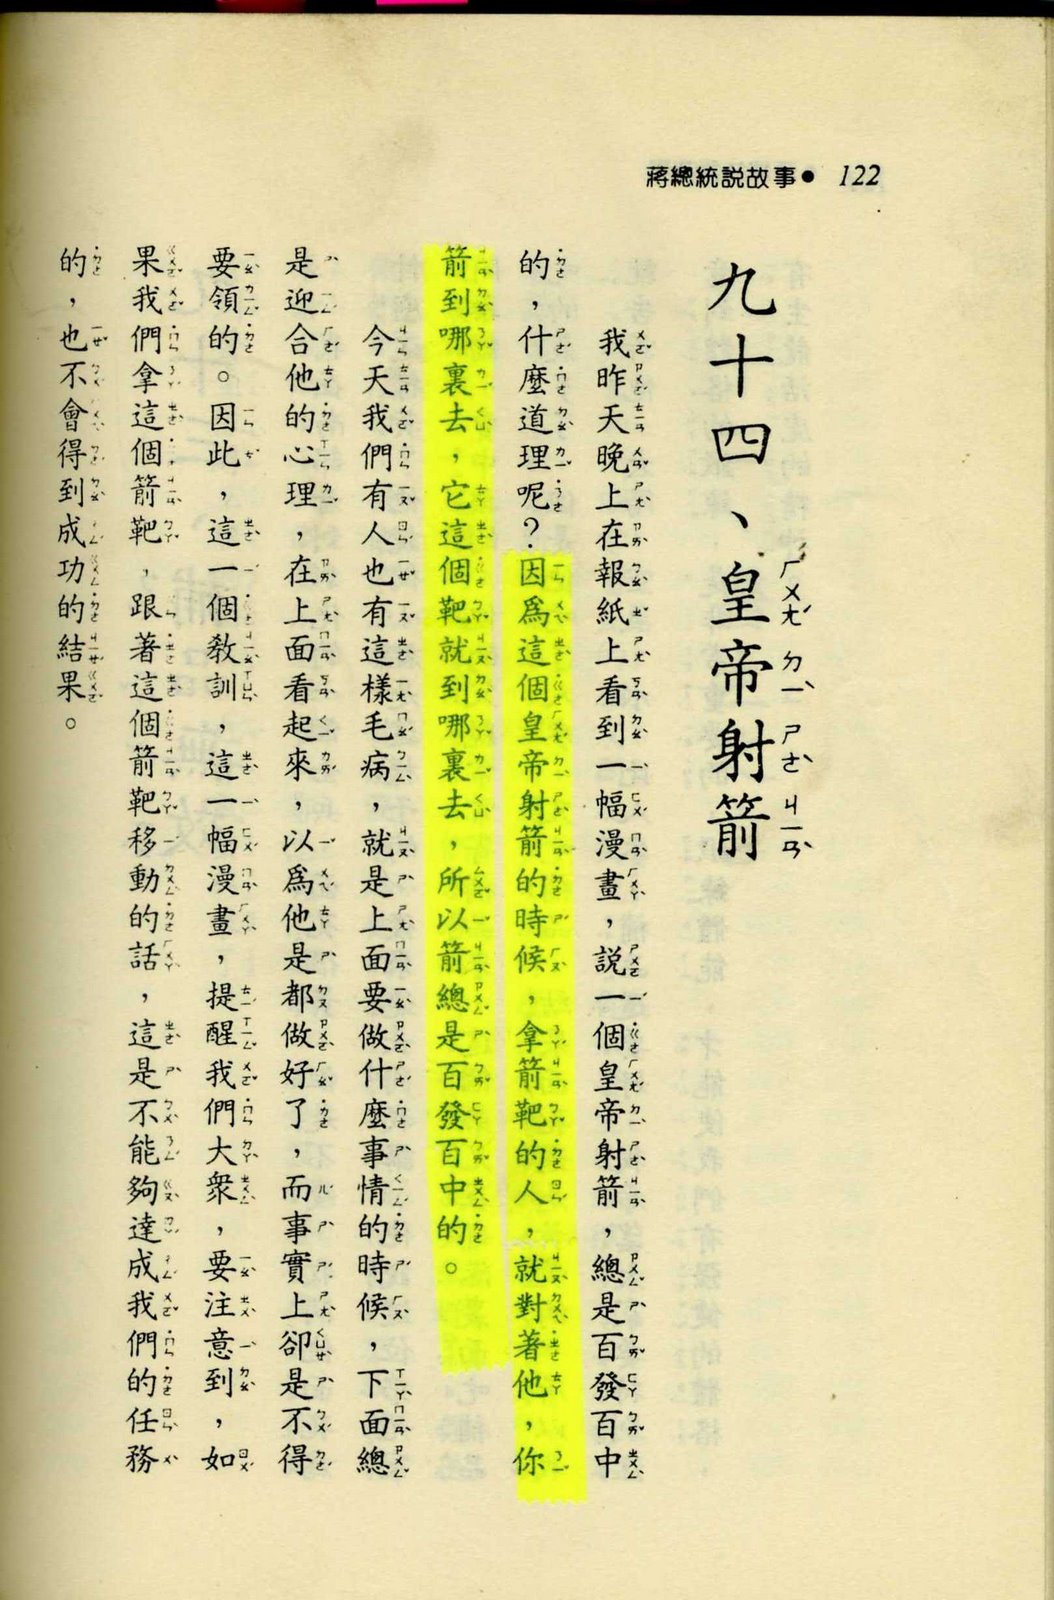 蔣總統說故事● 122
九十四、皇帝射箭
ㄏㄨㄤˊ ㄉㄧˋ ㄕㄜˋ ㄐㄧㄢˋ
我昨天晚上在報紙上看到一幅漫畫，說一個皇帝射箭，總是百發百中
的，什麼道理呢？因爲這個皇帝射箭的時候，拿箭靶的人，就對著他，你
箭到哪裏去，它這個靶就到哪裏去，所以箭總是百發百中的。
今天我們有人也有這樣毛病，就是上面要做什麼事情的時候，下面總
是迎合他的心理，在上面看起來，以爲他是都做好了，而事實上卻是不得
要領的。因此，這一個教訓，這一幅漫畫，提醒我們大衆，要注意到，如
果我們拿這個箭靶，跟著這個箭靶移動的話，這是不能夠達成我們的任務
的，也不會得到成功的結果。